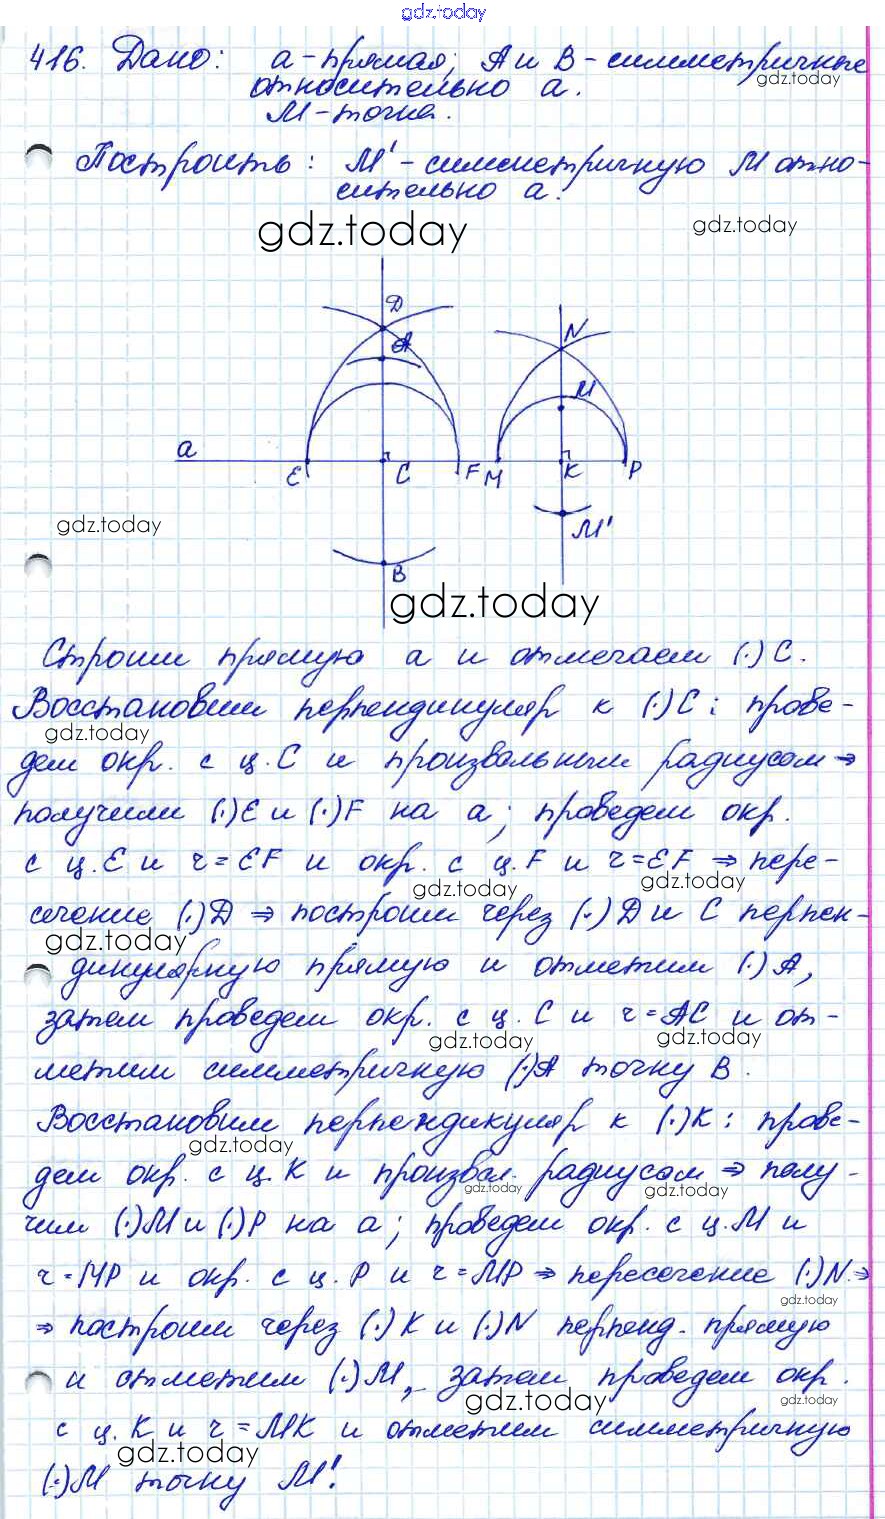 gdz.today
416. Дано: а-прямая; А и В - симметричные
gdz.today
относительно а.
М-точка.
Построить: М' - симметричную М отно-
сительно а.
gdz.today
gdz.today
D
A
N
M
a
E
C
F
M
K
P
gdz.today
M'
B
gdz.today
Строим прямую а и отмечаем (·)С.
Восстановим перпендикуляр к (·)С: прове-
gdz.today
дем окр. с ц. С и произвольным радиусом ⇒
получим (·)Е и (·)F на а; проведем окр.
с ц. Е и r = EF и окр. с ц. F и r = EF ⇒ пере-
gdz.today
gdz.today
сечение (·)D ⇒ построим через (·)D и С перпен-
gdz.today
дикулярную прямую и отметим (·)А,
затем проведем окр. с ц. С и r = AC и от-
gdz.today
gdz.today
метим симметричную (·)А точку В.
Восстановим перпендикуляр к (·)К: прове-
gdz.today
дем окр. с ц. К и произвол. радиусом ⇒ полу-
gdz.today
gdz.today
чим (·)М и (·)Р на а; проведем окр. с ц. М и
r = МР и окр. с ц. Р и r = МР ⇒ пересечение (·)N. ⇒
gdz.today
⇒ построим через (·)К и (·)N перпенд. прямую
и отметим (·)М, затем проведем окр.
gdz.today
gdz.today
с ц. К и r = МК и отметим симметричную
gdz.today
(·)М точку М'.